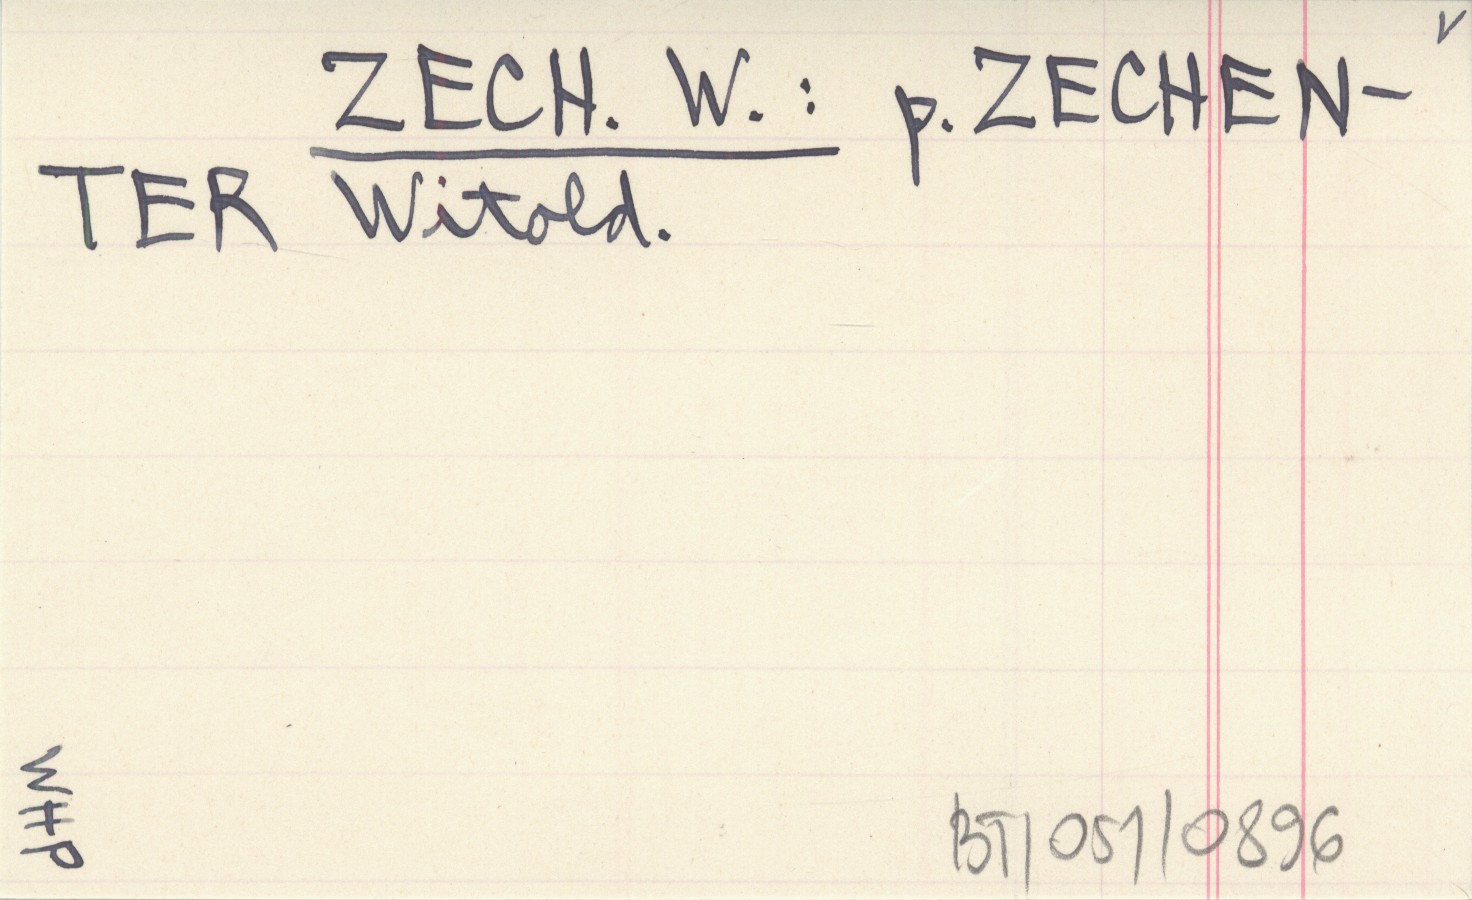 V
ZECH. W. : p. ZECHEN-
TER Witold.
WHP
BT|051|0896